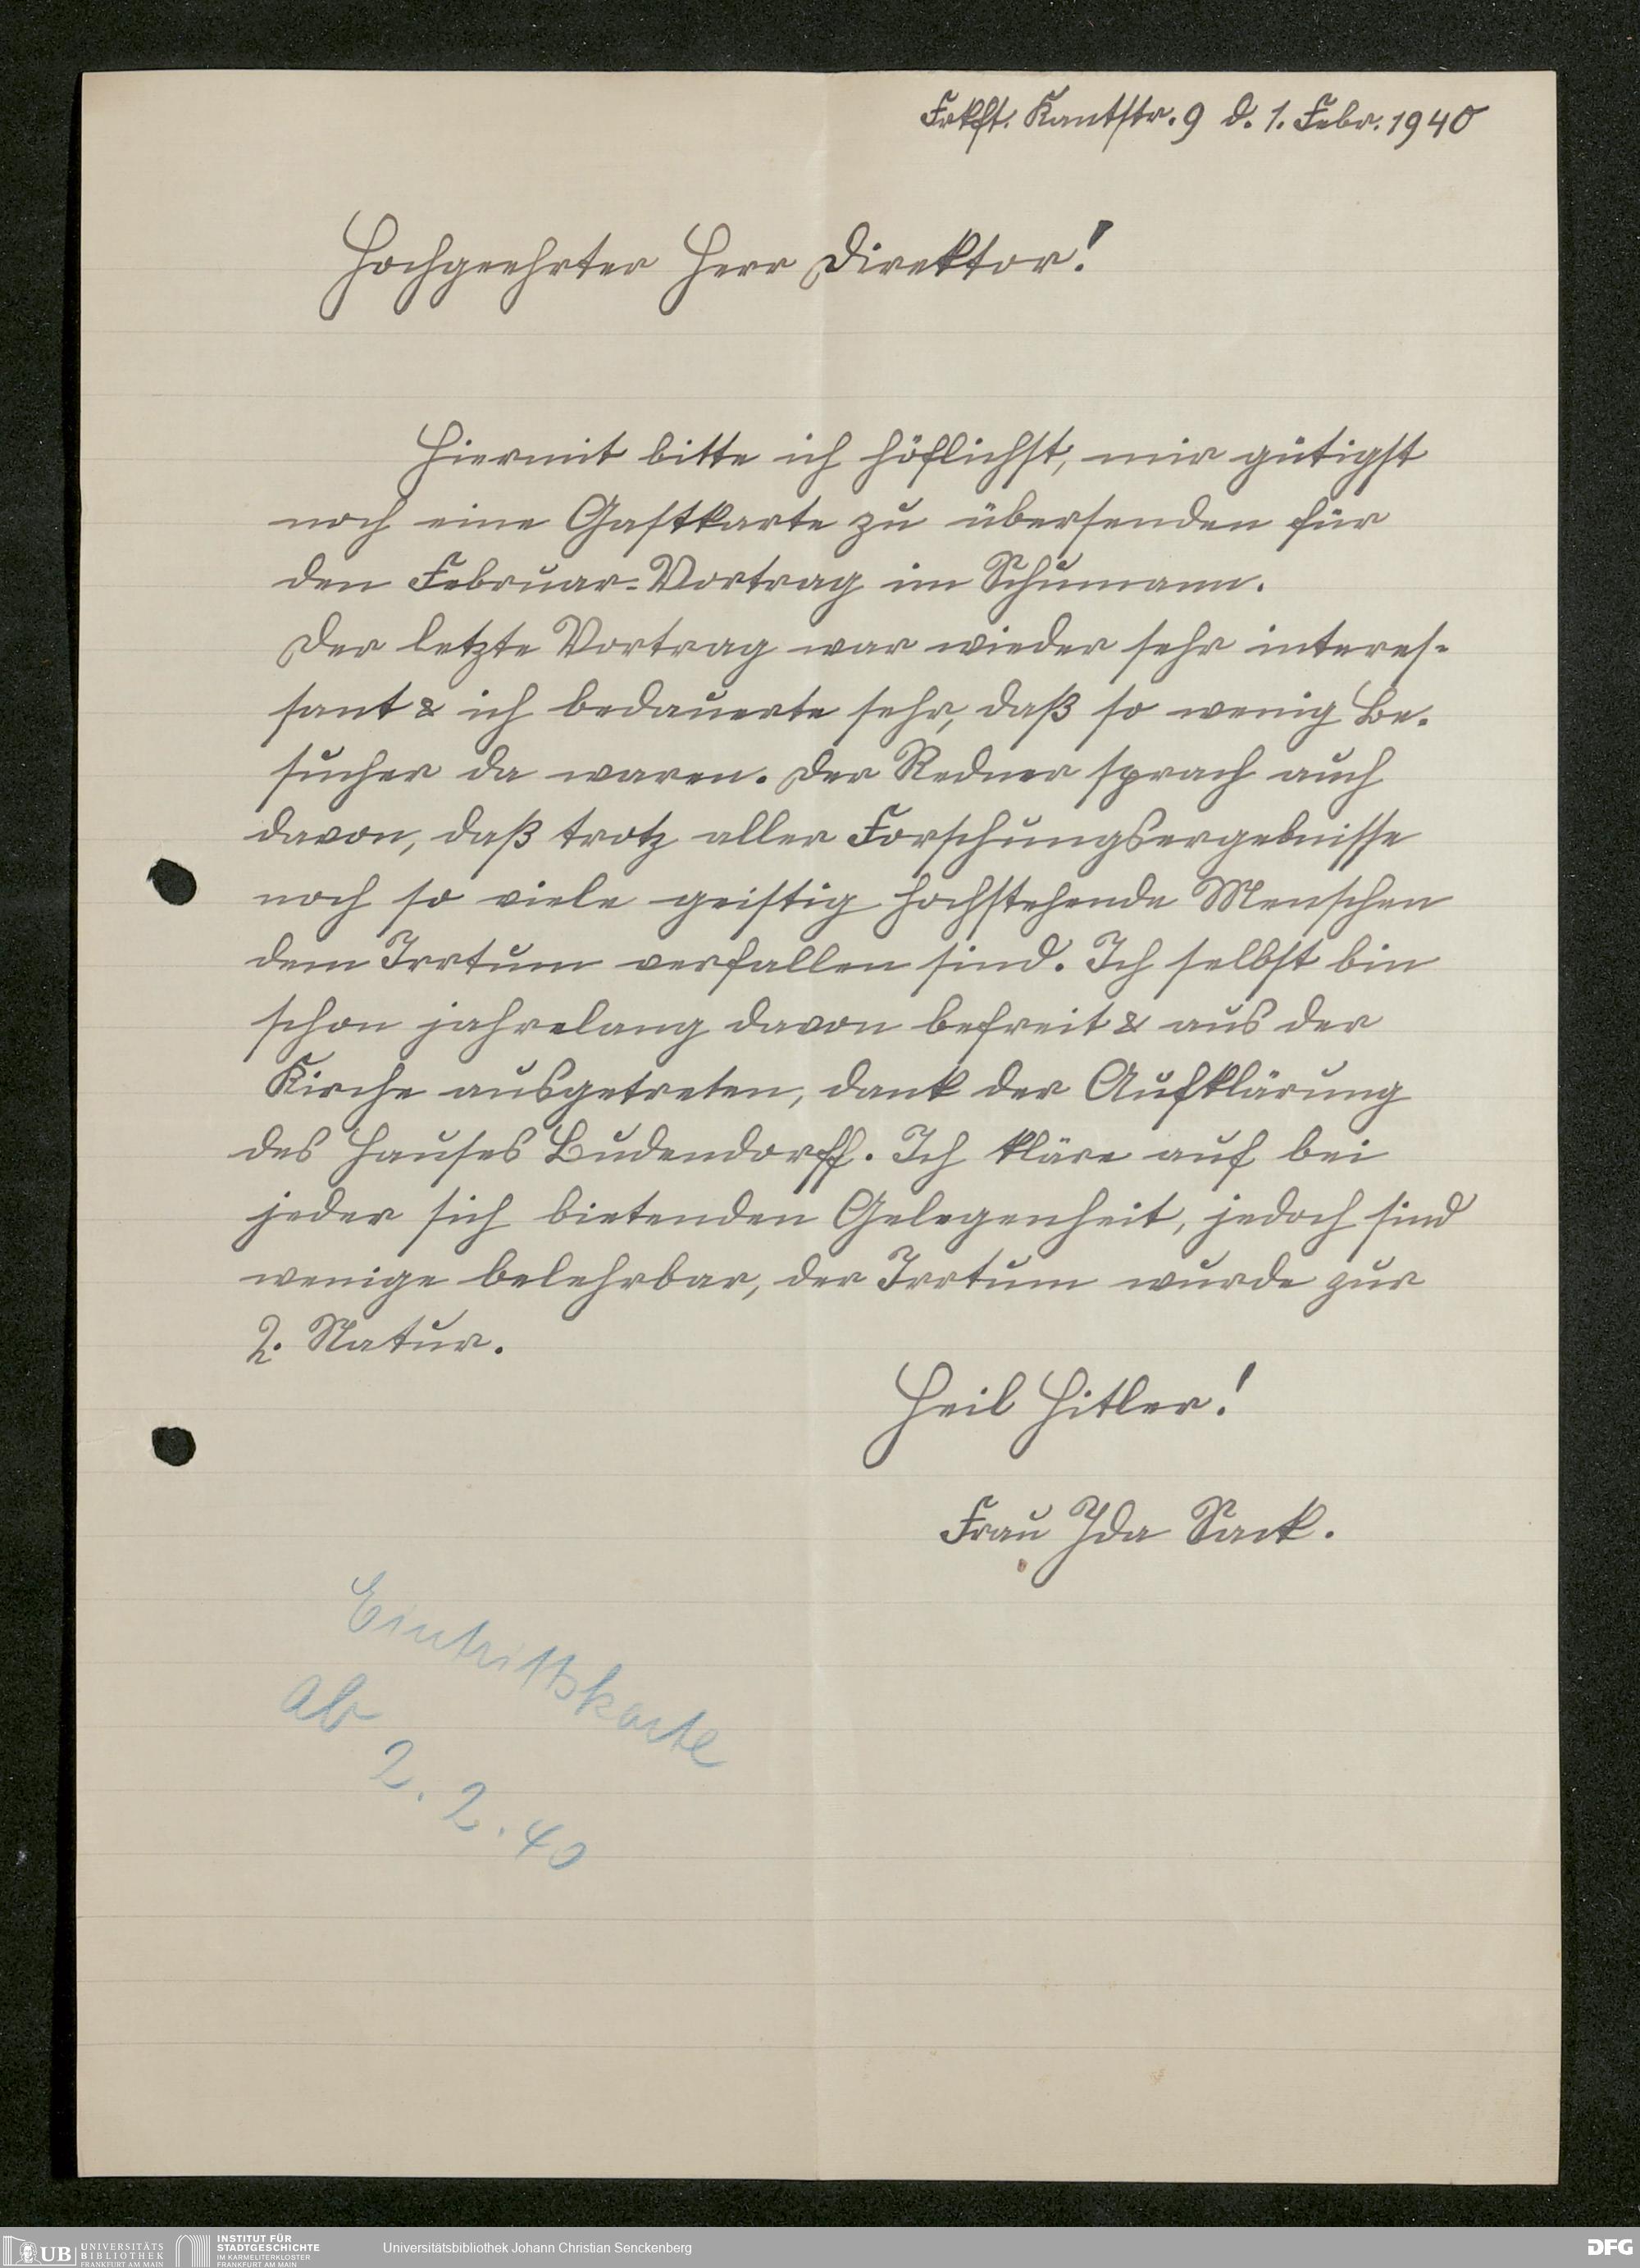 Frkft. Kantstr. 9 d. 1. Febr. 1940
Hochgeehrter Herr Direktor!
Hiermit bitte ich höflichst, mir gütigst
noch eine Gastkarte zu übersenden für
den Februar-Vortrag im Schumann.
Der letzte Vortrag war wieder sehr interes-
sant & ich bedauerte sehr, daß so wenig Be-
sucher da waren. Der Redner sprach auch
davon, daß trotz aller Forschungsergebnisse
noch so viele geistig hochstehende Menschen
dem Irrtum verfallen sind. Ich selbst bin
schon jahrelang davon befreit & aus der
Kirche ausgetreten, dank der Aufklärung
des Hauses Ludendorff. Ich kläre auf bei
jeder sich bietenden Gelegenheit, jedoch sind
wenige belehrbar, der Irrtum wurde zur
2. Natur.
Heil Hitler!
Frau Ida Sack.
Eintrittskarte
ab
2. 2. 40
UB UNIVERSITÄTS
BIBLIOTHEK
FRANKFURT AM MAIN
INSTITUT FÜR
STADTGESCHICHTE
IM KARMELITERKLOSTER
FRANKFURT AM MAIN
Universitätsbibliothek Johann Christian Senckenberg
DFG